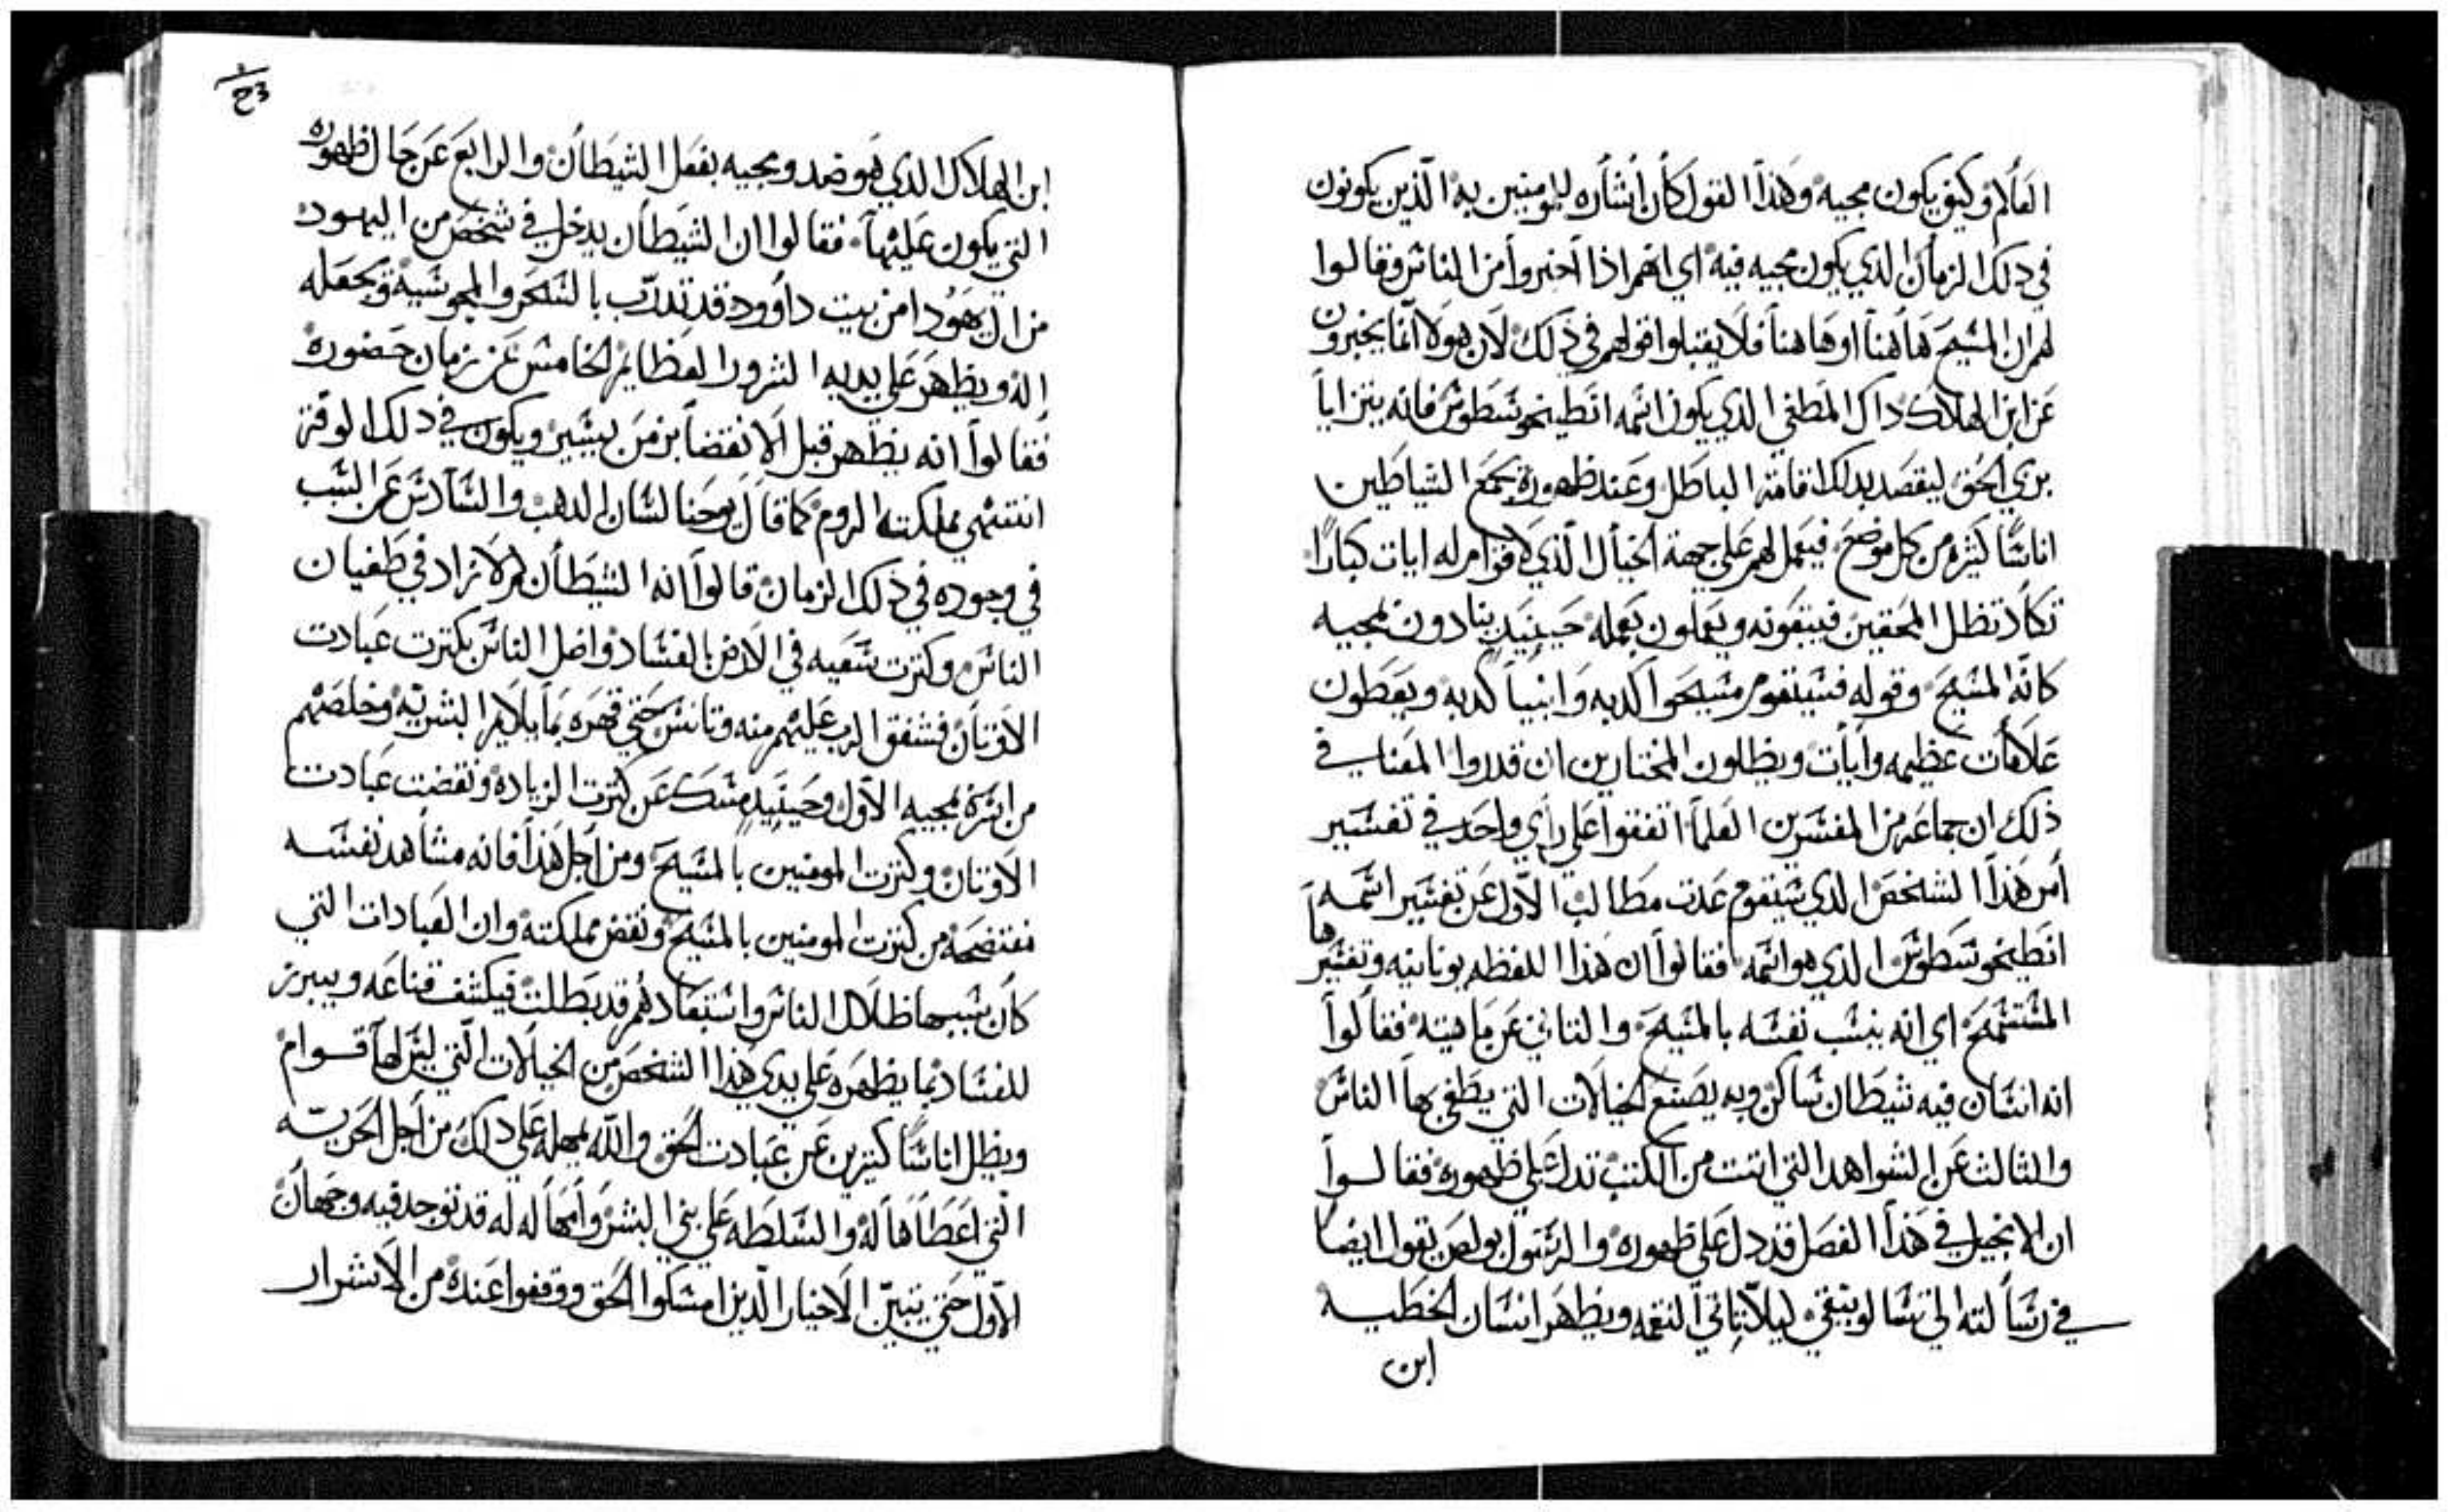 العالم وكيف يكون مجيه وهذا القول كان انشاره للمومنين به الذين يكونون
في دلك الزمان الدي يكون مجيه فيه اي انهم اذا اخبروا من الناس وقالوا
لهم ان المسيح هاهنا او هاهنا فلا يقبلوا قولهم في ذلك لان هولا انما يخبرون
عن ابن الهلاك داك المطغي الدي يكون اسمه انطيخوسطوس فانه يتزايا
بزي الحق ليقصد بدلك اقامة الباطل وعند ظهوره يجمع الشياطين
اناسًا كثيره من كل موضع فيعمل لهم على جهة الخيال الذي لا قوام له ايات كبارًا
تكاد تظل المحقين فيتبعونه ويعملون بعمله حينيدٍ ينادون بمجيه
كانه المسيح وقوله فسيقوم مسيحوا كدبه وانبيا كدبه ويعطون
علامات عظيمه وايات ويظلون المختارين ان قدروا المعنا في
ذلك ان جماعه من المفسرين العلما اتفقوا على راي واحد في تفسير
امر هذا الشخص الدي سيقوم عدت مطالب الاول عن تفسير اسمه
انطيخوسطوس الدي هو اسمه فقالوا ان هذا اللفظه يونانيه وتفسيرها
المستمسح اي انه ينسب نفسه بالمسيح والتاني عن ماهيته فقالوا
انه انسان فيه شيطان ساكن وبه يصنع الخيالات التي يطغي بها الناس
والتالت عن الشواهد التي اتت من الكتب تدل على ظهوره فقالوا
ان الانجيل في هذا الفصل قد دل على ظهوره والرسول بولص يقول ايضا
في رسالته الى تسالونيقي ليلا تاتي النقمه ويظهر انسان الخطيه
ابن
ابن الهلاك الدي هو ضد ومجيه بفعل الشيطان والرابع عن حال ظهوره
التي يكون عليها فقالوا ان الشيطان يدخل في شخص من اليهود
من ال يهودا من بيت داوود قد تدرب بالسحر والمجوسية ويجعله
اله ويظهر على يديه الشرور العظايم الخامس عن زمان حضوره
فقالوا انه يظهر قبل الانقضا بزمن يسير ويكون في دلك الوقت
انتشهي مملكته الروم كما قال يوحنا لسان الدهب والسادس عن السبب
في وجوده في ذلك الزمان قالوا انه الشيطان لم لا زاد في طغيان
الناس وكترت سعيه في الارض بالفساد واضل الناس بكترت عبادت
الاوتان فشفق الرب عليهم منه وتانس حتي قهره بمايلايم البشريه وخلصهم
من اسره بمجيه الاول وحينيدٍ مسك عن كترت الزياده ونقضت عبادت
الاوتان وكترت المومنين بالمسيح ومن اجل هذا فانه مشاهد نفسه
مفتضحه من كترت المومنين بالمسيح ونقض مملكته وان العبادات التي
كان سببها ظلال الناس واستبعادهم قد بطلت فيكشف قناعه ويبرز
للفساد بما يظهره على يدي هذا الشخص من الخيالات التي ليس لها قوام
ويظل اناسًا كتيرين عن عبادت الحق والله يمهله على دلك من اجل الحريه
التي اعطاها له والسلطه على بني البشر وامهاله له قد توجد فيه وجهان
الاول حتي يتبين الاخيار الذين امسكوا الحق ووقفوا عنده من الاشرار